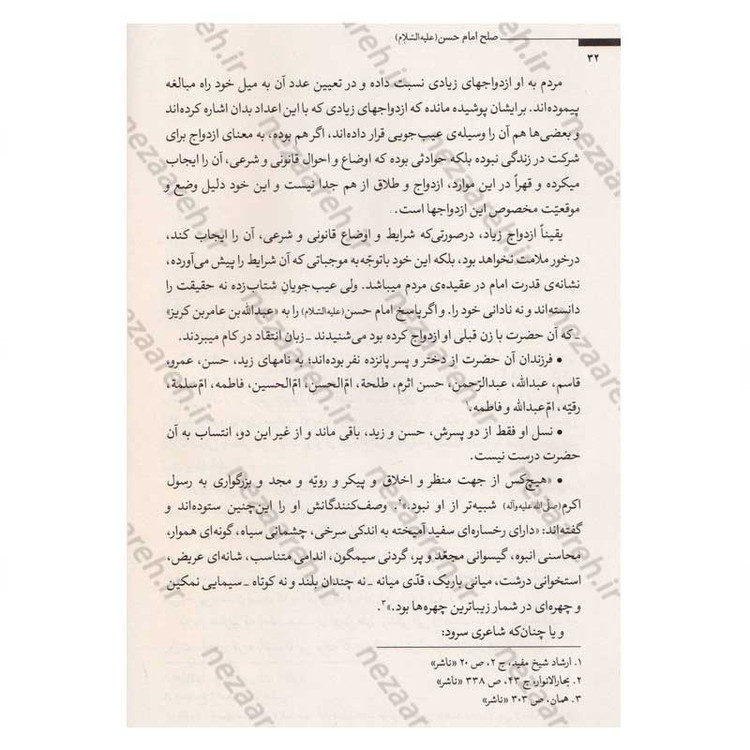 صلح امام حسن (علیه السّلام)
۳۲
مردم به او ازدواجهای زیادی نسبت داده و در تعیین عدد آن به میل خود راه مبالغه
پیموده‌اند. بر ایشان پوشیده مانده که ازدواجهای زیادی که با این اعداد بدان اشاره کرده‌اند
و بعضی‌ها هم آن را وسیله‌ی عیب‌جویی قرار داده‌اند، اگر هم بوده، به معنای ازدواج برای
شرکت در زندگی نبوده بلکه حوادثی بوده که اوضاع و احوال قانونی و شرعی، آن را ایجاب
میکرده و قهراً در این موارد، ازدواج و طلاق از هم جدا نیست و این خود دلیل وضع و
موقعیّت مخصوص این ازدواجها است.
یقیناً ازدواج زیاد، درصورتی‌که شرایط و اوضاع قانونی و شرعی، آن را ایجاب کند،
درخور ملامت نخواهد بود، بلکه این خود باتوجّه به موجباتی که آن شرایط را پیش می‌آورده،
نشانه‌ی قدرت امام در عقیده‌ی مردم میباشد. ولی عیب‌جویانِ شتاب‌زده نه حقیقت را
دانسته‌اند و نه نادانی خود را. و اگر پاسخ امام حسن (علیه السّلام) را به «عبدالله‌ بن عامر بن کریز»
ـ که آن حضرت با زن قبلی او ازدواج کرده بود می‌شنیدند ـ زبان انتقاد در کام میبردند.
• فرزندان آن حضرت از دختر و پسر پانزده نفر بوده‌اند؛ به نامهای زید، حسن، عمرو،
قاسم، عبدالله، عبدالرّحمن، حسن اثرم، طلحة، امّ‌الحسن، امّ‌الحسین، فاطمه، امّ‌سلمة،
رقیّه، امّ‌عبدالله و فاطمه.۱
• نسل او فقط از دو پسرش، حسن و زید، باقی ماند و از غیر این دو، انتساب به آن
حضرت درست نیست.
• «هیچ‌کس از جهت منظر و اخلاق و پیکر و رویّه و مجد و بزرگواری به رسول
اکرم (صلّی الله علیه وآله) شبیه‌تر از او نبود.»۲. وصف‌کنندگانش او را این‌چنین ستوده‌اند و
گفته‌اند: «دارای رخساره‌ای سفید آمیخته به اندکی سرخی، چشمانی سیاه، گونه‌ای هموار،
محاسنی انبوه، گیسوانی مجعّد و پر، گردنی سیمگون، اندامی متناسب، شانه‌ای عریض،
استخوانی درشت، میانی باریک، قدّی میانه ـ نه چندان بلند و نه کوتاه ـ سیمایی نمکین
و چهره‌ای در شمار زیباترین چهره‌ها بود.»۳.
و یا چنان‌که شاعری سرود:
۱. ارشاد شیخ مفید، ج ۲، ص ۲۰ «ناشر»
۲. بحارالانوار، ج ۴۳، ص ۳۳۸ «ناشر»
۳. همان، ص ۳۰۳ «ناشر»
nezaareh.ir